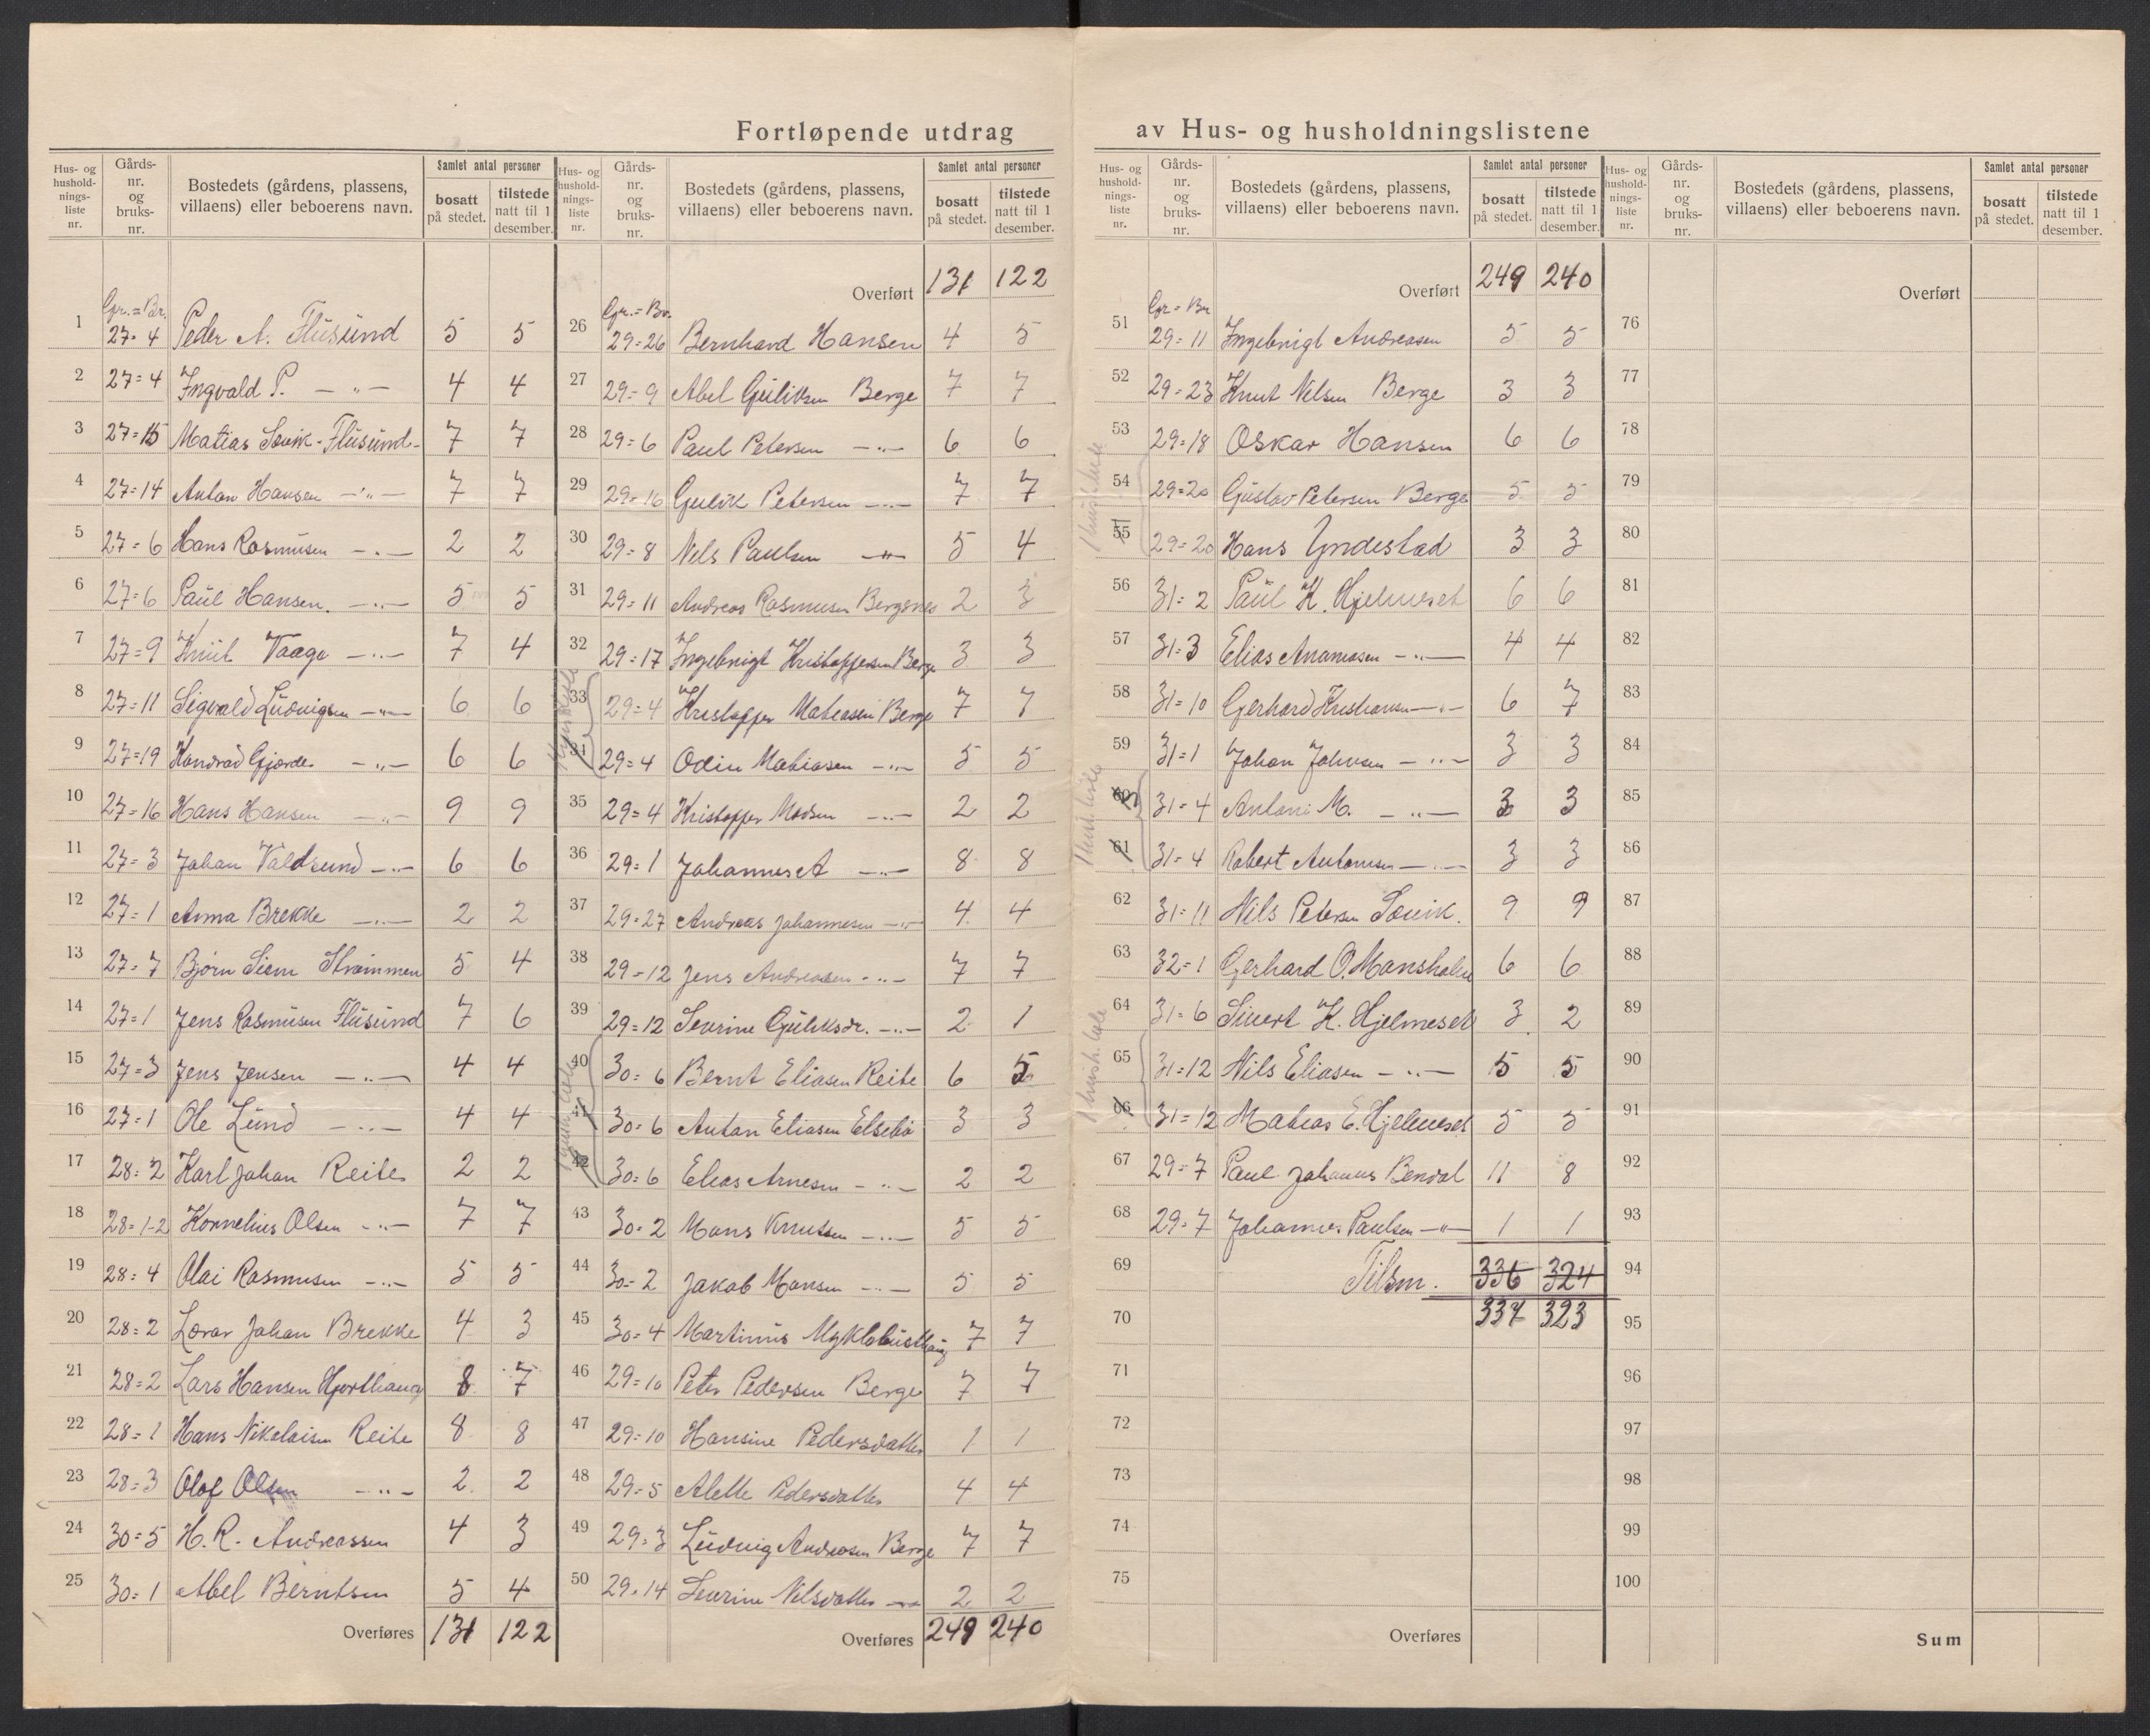 Fortløpende utdrag av Hus- og husholdningslistene
Hus- og husholdnings- liste nr. Gårds- nr. og bruks- nr. Bostedets (gårdens, plassens, villaens) eller beboerens navn. Samlet antal personer bosatt på stedet. tilstede natt til 1 desember.
Gnr. = Br.
1 27=4 Peder A. Flusund 5 5
2 27=4 Ingvald P. -"- 4 4
3 27=15 Matias Søvik-Flusund- 7 7
4 27=14 Anton Hansen -"- 7 7
5 27=6 Hans Rasmusen -"- 2 2
6 27=6 Paul Hansen. -"- 5 5
7 27=9 Knut Vaage -"- 7 4
8 27=11 Sigvald Ludvigsen -"- 6 6
9 27=19 Konrad Gjørde -"- 6 6
10 27=16 Hans Hansen -"- 9 9
11 27=3 Johan Valdsund -"- 6 6
12 27=1 Anna Brekke -"- 2 2
13 27=7 Bjørn Siem Strømmen 5 4
14 27=1 Jens Rasmusen Flusund 7 6
15 27=3 Jens Jensen -"- 4 4
16 27=1 Ole Lund -"- 4 4
17 28=2 Karl Johan Reite 2 2
18 28=1-2 Kornelius Olsen -"- 7 7
19 28=4 Olai Rasmusen -"- 5 5
20 28=2 Johan Brekke 4 3
21 28=2 Lars Hansen Hjorthaug 8 7
22 28=1 Hans Nikolaisen Reite 8 8
23 28=3 Olof Olsen -"- 2 2
24 30=5 H. R. Andreassen 4 3
25 30=1 Abel Berntsen 5 4
Overføres 131 122
Hus- og husholdnings- liste nr. Gårds- nr. og bruks- nr. Bostedets (gårdens, plassens, villaens) eller beboerens navn. Samlet antal personer bosatt på stedet. tilstede natt til 1 desember.
Overført 131 122
Gnr. = Br.
26 29=26 Bernhard Hansen 4 5
27 29=9 Abel Guliksen Berge 7 7
28 29=6 Paul Petersen -"- 6 6
29 29=16 Gulik Petersen -"- 7 7
30 29=8 Nels Paulsen -"- 5 4
31 29=11 Andreas Rasmusen Bergsnes 2 3
32 29=17 Ingebrigt Kristoffersen Berge 3 3
33 29=4 Kristoffer Matiasen Berge 7 7
34 29=4 Odin Matiasen -"- 5 5
35 29=4 Kristoffer Madsen -"- 2 2
36 29=1 Johannes A -"- 8 8
37 29=27 Andreas Johannesen -"- 4 4
38 29=12 Jens Andreasen -"- 7 7
39 29=12 Sevrine Guliksdr. -"- 2 1
40 30=6 Bernt Eliasen Reite 6 5
41 30=6 Anton Eliasen Elsebø 3 3
42 30=6 Elias Arnesen -"- 2 2
43 30=2 Mons Knutsen -"- 5 5
44 30=2 Jakob Monsen -"- 5 5
45 30=4 Martinus Myklebusthaug 7 7
46 29=10 Peter Pedersen Berge 7 7
47 29=10 Hansine Pedersdatter 1 1
48 29=5 Alette Pedersdatter 4 4
49 29=3 Ludvig Andreasen Berge 7 7
50 29=14 Sevrine Nelsdatter -"- 2 2
Overføres 249 240
Hus- og husholdnings- liste nr. Gårds- nr. og bruks- nr. Bostedets (gårdens, plassens, villaens) eller beboerens navn. Samlet antal personer bosatt på stedet. tilstede natt til 1 desember.
Overført 249 240
Gnr = Br
51 29=11 Ingebrigt Andreasen 5 5
52 29=23 Knut Nelsen Berge 3 3
53 29=18 Oskar Hansen 6 6
54 29=20 Gustav Petersen Berge 5 5
55 29=20 Hans Yndestad 3 3
56 31=2 Paul K. Hjelmeset 6 6
57 31=3 Elias Ananiasen -"- 4 4
58 31=10 Gerhard Kristiansen -"- 6 7
59 31=1 Johan Johnsen -"- 3 3
60 31=4 Antoni M. -"- 3 3
61 31=4 Robert Antonisen -"- 3 3
62 31=11 Nils Petersen Søvik. 9 9
63 32=1 Gerhard O. Mansholm 6 6
64 31=6 Sivert K. Hjelmeset 3 2
65 31=12 Nils Eliasen -"- 5 5
66 31=12 Matias E. Hjelmeset 5 5
67 29=7 Paul Johannes Bendal 11 8
68 29=7 Johannes Paulsen -"- 1 1
69 Tilsm. 336 324
70 337 323
71
72
73
74
75
Overføres
Hus- og husholdnings- liste nr. Gårds- nr. og bruks- nr. Bostedets (gårdens, plassens, villaens) eller beboerens navn. Samlet antal personer bosatt på stedet. tilstede natt til 1 desember.
Overført
76
77
78
79
80
81
82
83
84
85
86
87
88
89
90
91
92
93
94
95
96
97
98
99
100
Sum